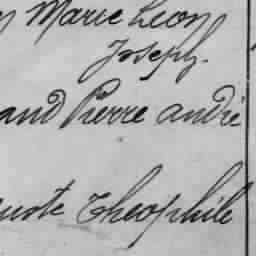 Marie Leon
Joseph.
and Pierre André
Theophile